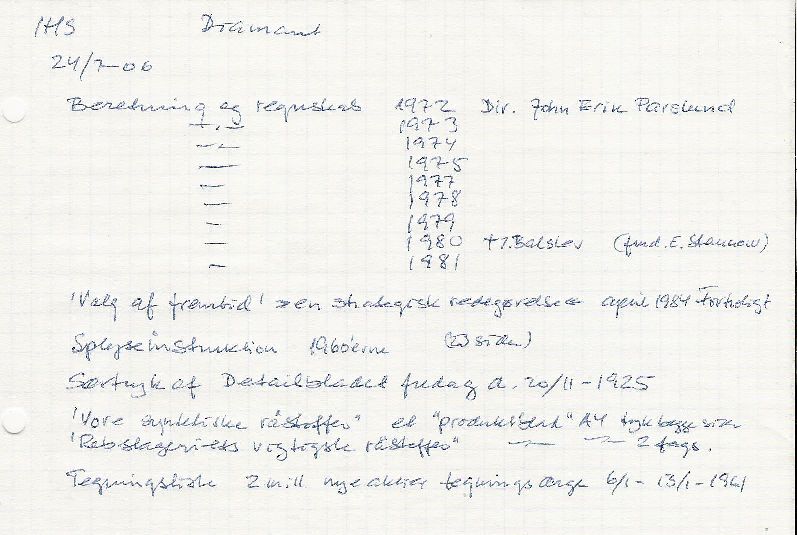 IHS Diamant
24/7-00
Beretning og regnskab 1972 Dir. John Erik Parslund
—"— 1973
—"— 1974
— 1975
— 1977
— 1978
— 1979
— 1980 + I. Balslev (fmd. E. Stannow)
— 1981
'Valg af fremtid' en strategisk redegørelse april 1984 Fortroligt
Splejseinstruktion 1960'erne (23 sider)
Særtryk af Detailbladet fredag d. 20/11-1925
'Vore syntetiske råstoffer" et "produktblad" A4 tryk begge sider
'Rebslageriets vigtigste råstoffer" —"— —"— 2 fags.
Tegningsliste 2 mill nye aktier tegnings 6/1-13/1-1961